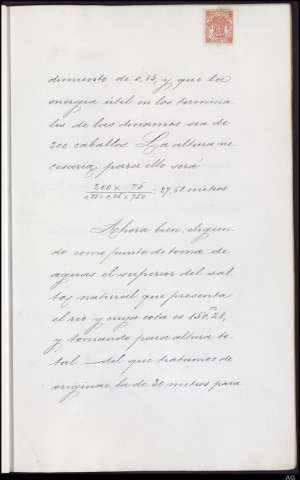 dimiento de 0,75, y que la
energia útil en los termina
les de las dinamos sea de
200 caballos. La altura ne
cesaria para ello será
200 x 75
0,75 x 0,75 x 750 = 37,61 metros
Ahora bien, eligien
do como punto de toma de
aguas el superior del sal
to natural que presenta
el rio y cuya cota es 150,m28,
y tomando para altura to
tal del que tratamos de
originar la de 30 metros para